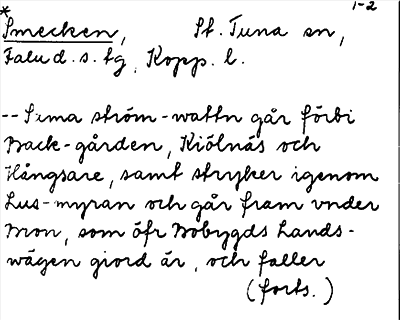 * 1-2
Smecken, St. Tuna sn,
Falu d.s. fg, Kopp. l.
-- Sama ström-wattn går förbi
Back-gården, Kiölnäs och
Hångsare, samt stryker igenom
Lus-myran och går fram vnder
Bron, som öfr Bobygds Lands-
wägen giord är, och faller
(forts.)